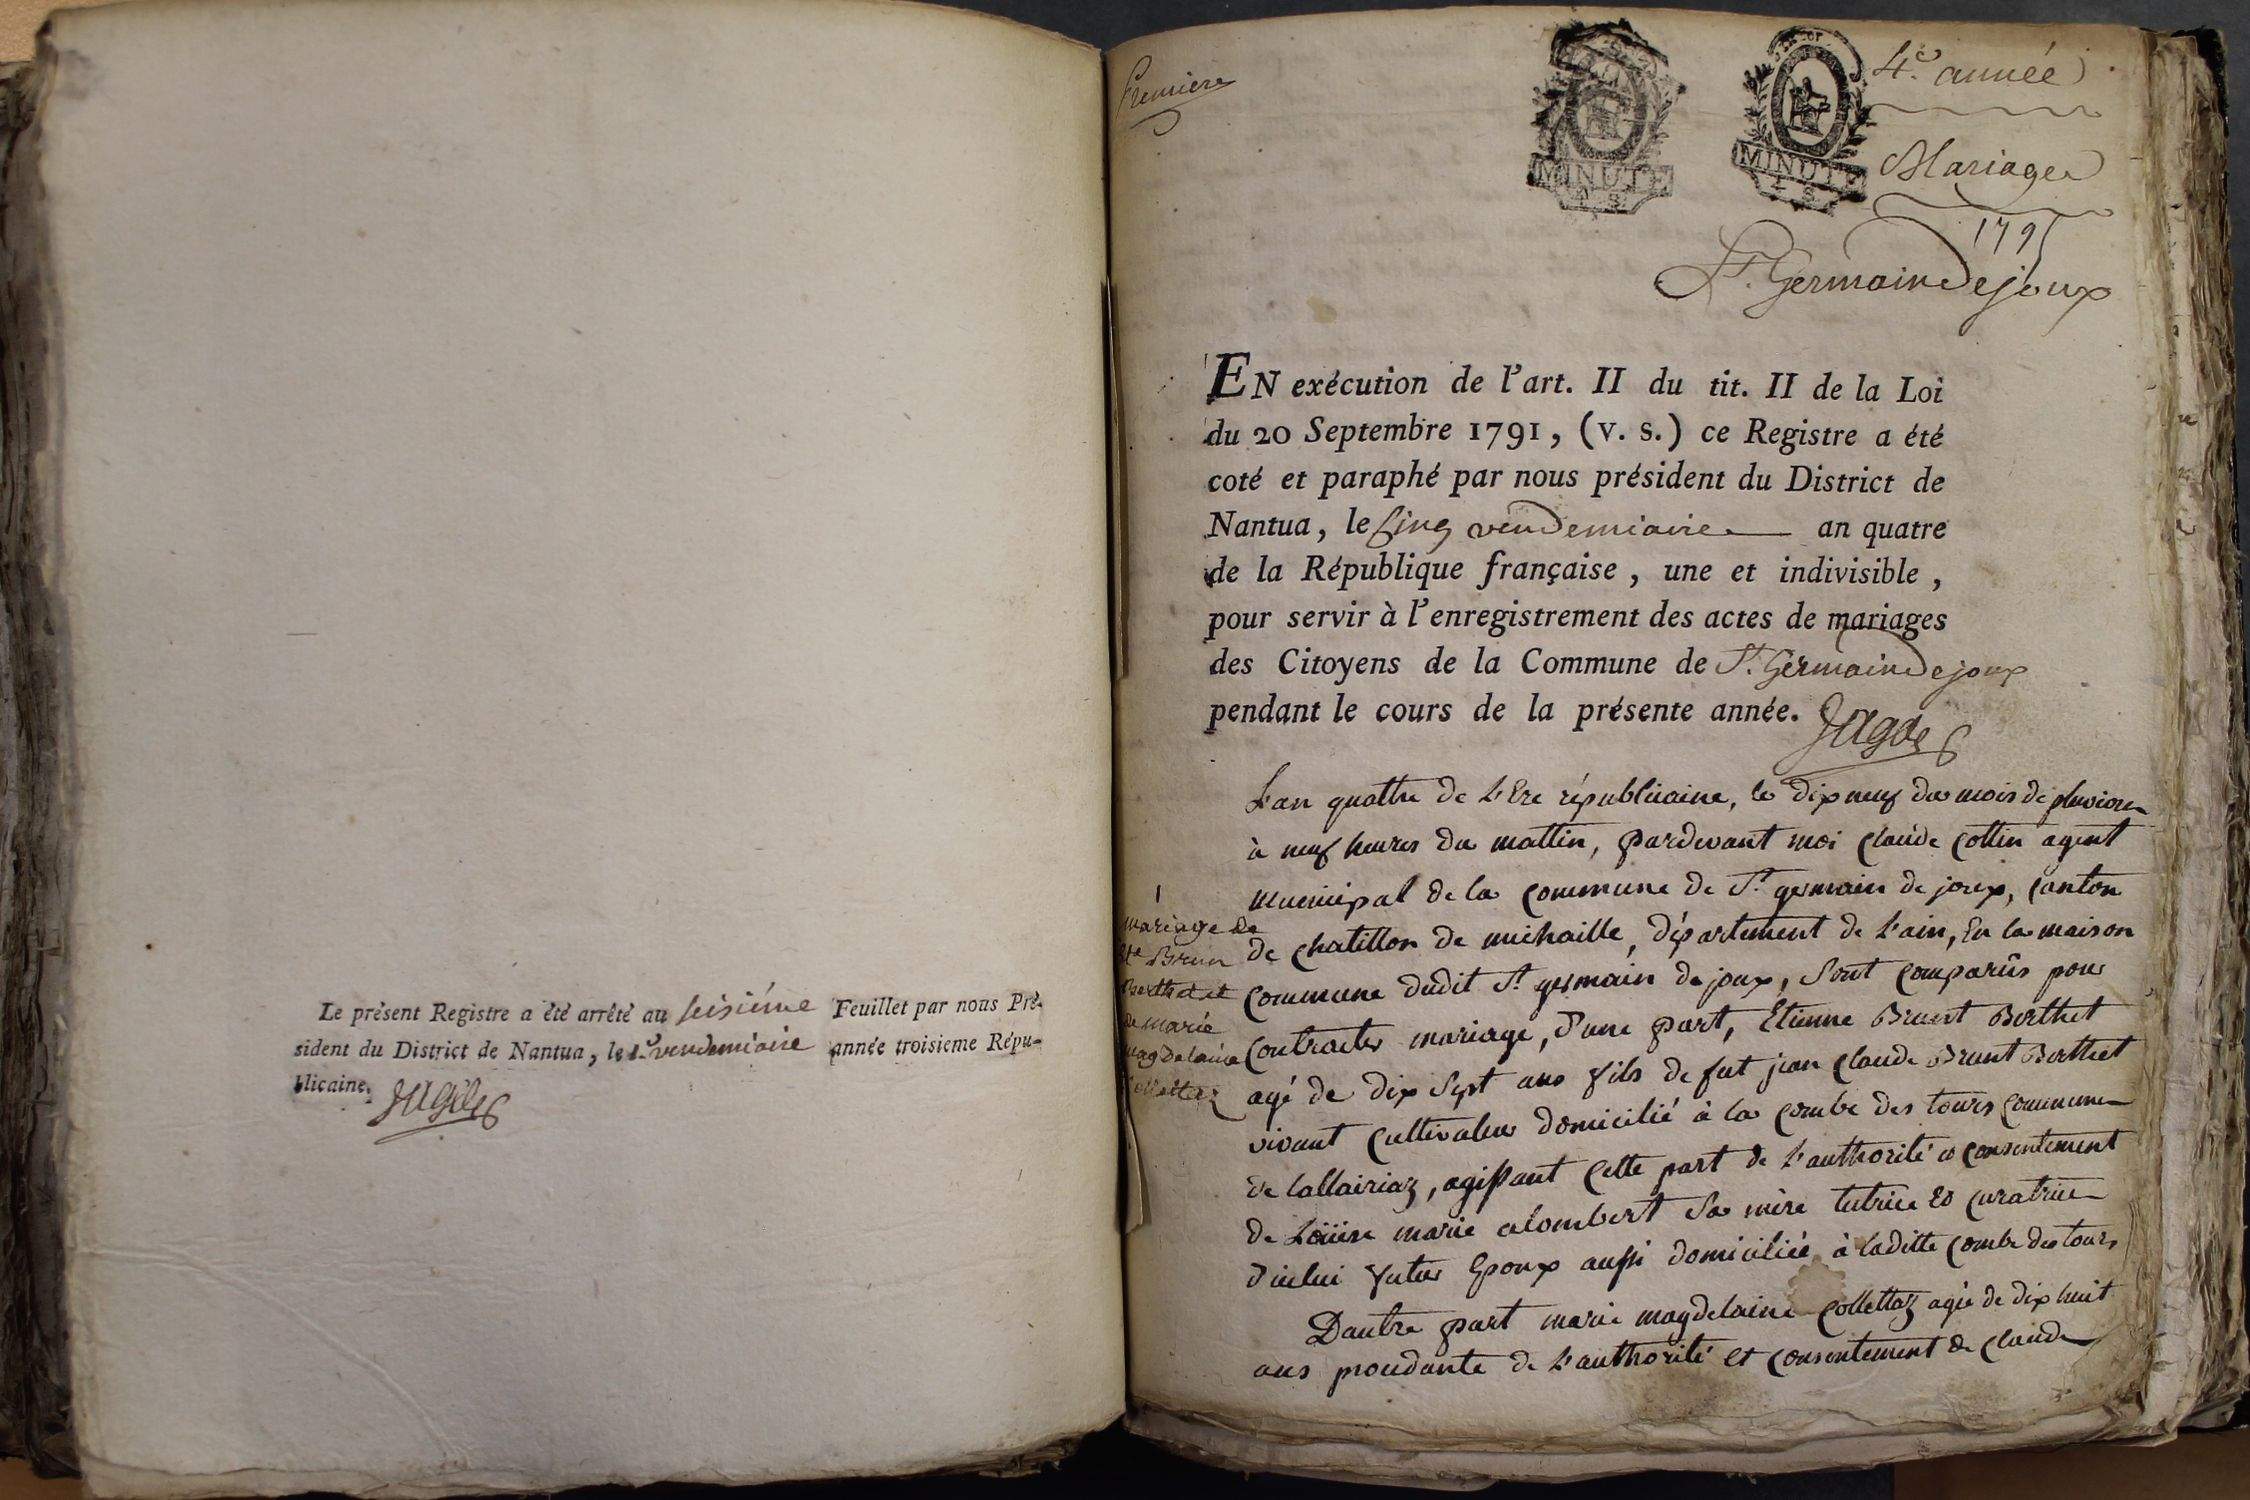 Le présent Registre a été arrêté au seisiéme Feuillet par nous Pré-
sident du District de Nantua, le 1er vendemiaire année troisieme Répu-
blicaine.
Premiere
MINUTE
4 S
MINUTE
4 S
4e année
Mariages
1795
St. Germain Dejoux
EN exécution de l'art. II du tit. II de la Loi
du 20 Septembre 1791, (v. s.) ce Registre a été
coté et paraphé par nous président du District de
Nantua, le Cinq vendemiaire an quatre
de la République française, une et indivisible,
pour servir à l'enregistrement des actes de mariages
des Citoyens de la Commune de St. Germain Dejoux
pendant le cours de la présente année.
L'an quattre de L'Ere républicaine, le dix neuf du mois de pluviose
à neuf heures du mattin, pardevant moi Claude Cottin agent
municipal de la commune de St germain de joux, Canton
de chatillon de michaille, département de L'ain, En la maison
Commune dudit St germain de joux, Sont comparûs pour
Contracter mariage, D'une part, Etienne Brunt Berthet
agé de dix Sept ans fils de fut jean Claude Brunt Berthet
vivant Cultivateur domicilié à la combe des tours commune
de Lallairiaz, agissant Cette part de L'authorité et consentement
de Loüise marie alombert Sa mère tutrice et curatrice
d'icelui futur Epoux aussi domiciliée à laditte Combe des tours
Dautre part marie magdelaine Collettaz agée de dix huit
ans procedante de L'authorité et consentement de Claude
1
mariage de
Ete Brun
Berthet et
de marie
magdelaine
Collettaz